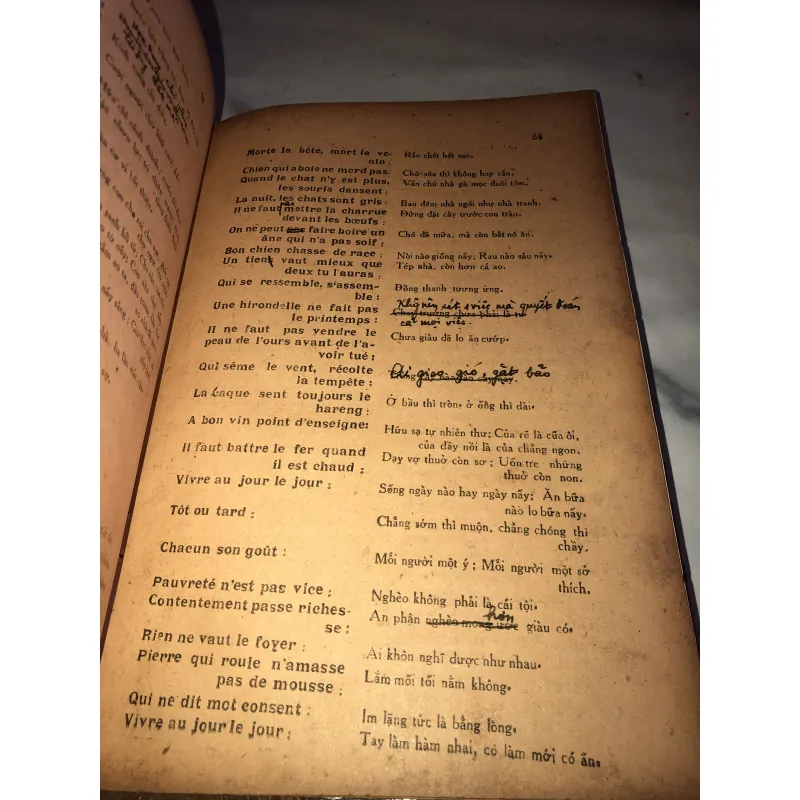 64
Morte la bête, mort le ve-
nin:
Rắn chết hết nọc.
Chien qui aboie ne mord pas:
Chó sủa thì không hay cắn.
Quand le chat n'y est plus,
les souris dansent:
Vắn chủ nhà gà mọc đuôi tôm.
La nuit, les chats sont gris:
Ban đêm nhà ngói như nhà tranh.
Il ne faut pas mettre la charrue
devant les bœufs:
Đừng đặt cày trước con trâu,
On ne peut faire boire un
âne qui n'a pas soif:
Chó đã mửa, mà còn bắt nó ăn.
Bon chien chasse de race:
Nòi nào giống nấy; Rau nào sâu nấy.
Un tiens vaut mieux que
deux tu l'auras:
Tép nhà, còn hơn cá ao.
Qui se ressemble, s'assem-
ble:
Đồng thanh tương ứng.
Une hirondelle ne fait pas
le printemps:
Không nên xét 1 việc mà quyết đoán
cả mọi việc.
Il ne faut pas vendre le
peau de l'ours avant de l'a-
voir tué;
Chưa giàu đã lo ăn cướp.
Qui sème le vent, récolte
la tempête:
Ai gieo gió, gặt bão
La caque sent toujours le
hareng:
Ở bầu thì tròn, ở ống thì dài.
A bon vin point d'enseigne:
Hữu sạ tự nhiên thư; Của rẻ là của ôi,
của đầy nồi là của chẳng ngon.
Il faut battre le fer quand
il est chaud:
Dạy vợ thuở còn sơ; Uốn tre những
thuở còn non.
Vivre au jour le jour:
Sống ngày nào hay ngày nấy; Ăn bữa
nào lo bữa nấy.
Tôt ou tard:
Chẳng sớm thì muộn, chẳng chóng thì
chầy.
Chacun son goût:
Mỗi người một ý; Mỗi người một sở
thích.
Pauvreté n'est pas vice:
Nghèo không phải là cái tội.
Contentement passe riches-
se:
An phận nghèo mong ước hơn giàu có.
Rien ne vaut le foyer:
Ai khôn nghĩ được như nhau.
Pierre qui roule n'amasse
pas de mousse:
Lắm mối tối nằm không.
Qui ne dit mot consent:
Im lặng tức là bằng lòng.
Vivre au jour le jour:
Tay làm hàm nhai, có làm mới có ăn.